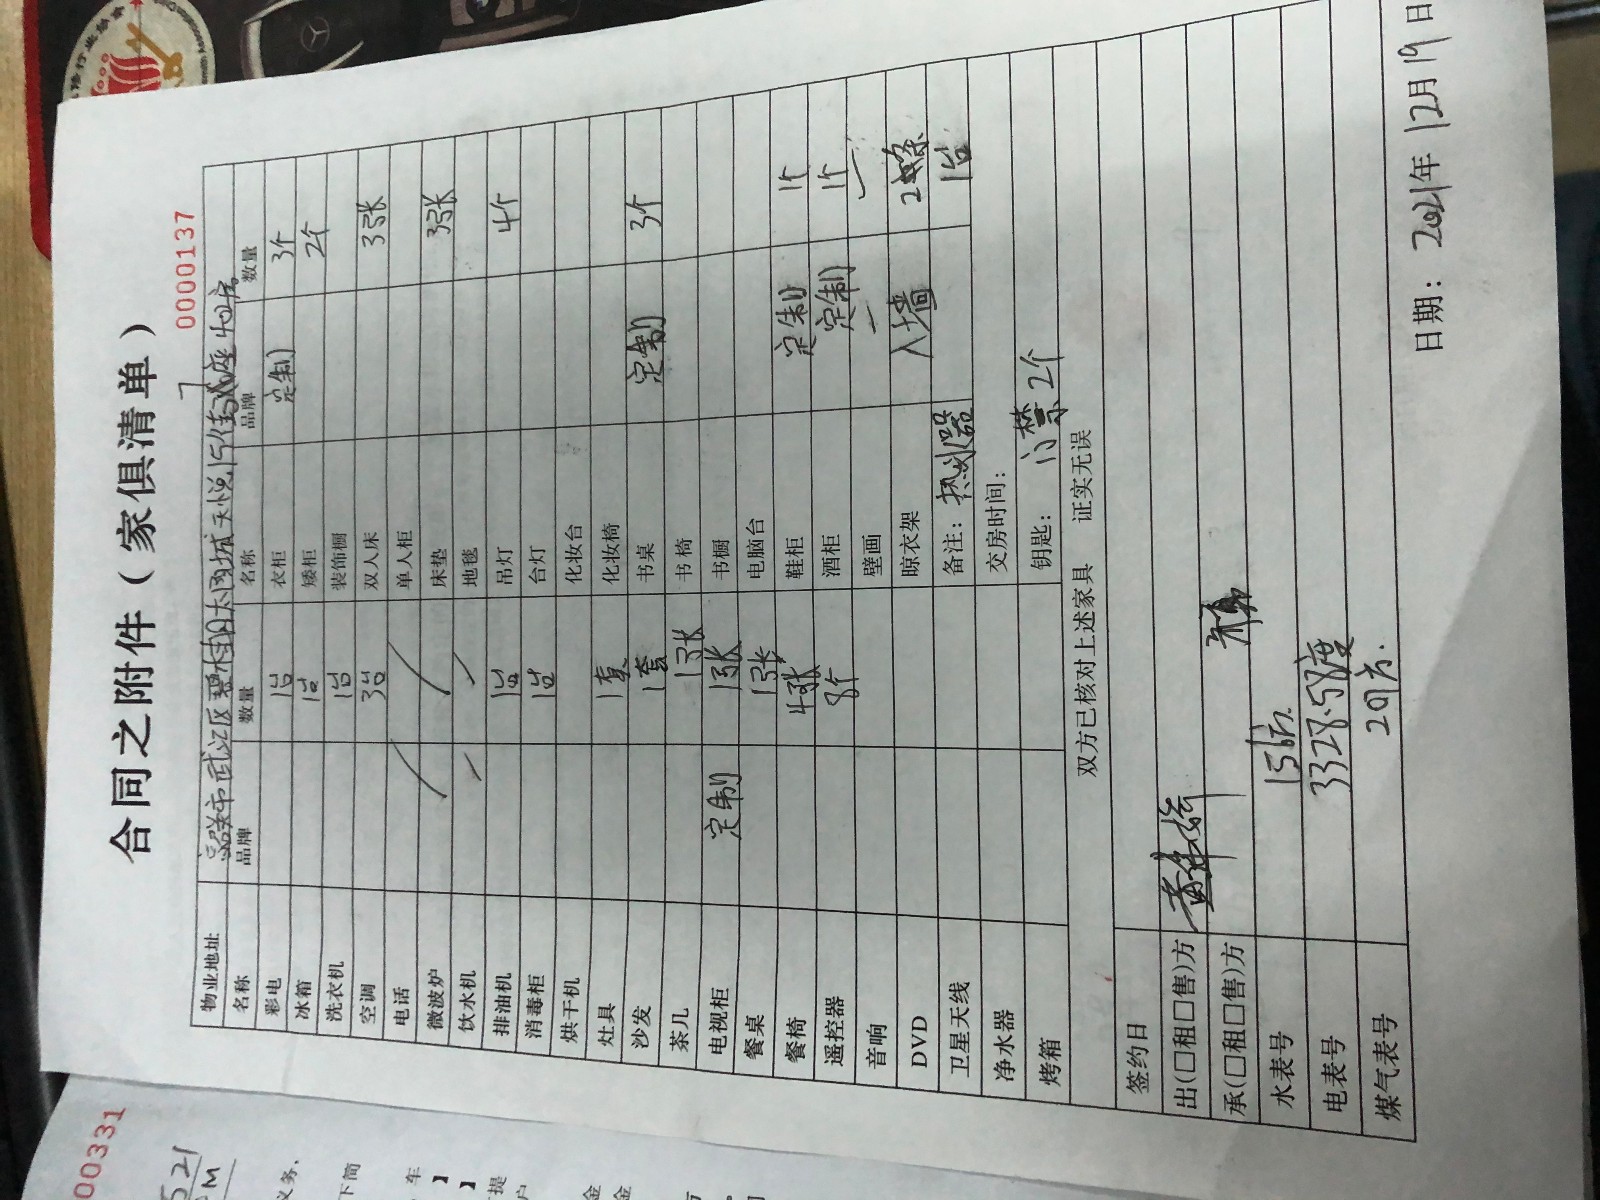 合同之附件(家俱清单)
0000137
物业地址 韶关市武江区碧桂园太阳城天悦15街 座402房
名称 品牌 数量 名称 品牌 数量
彩电 1台 衣柜 定制 3个
冰箱 1台 矮柜 2个
洗衣机 1台 装饰橱
空调 3台 双人床 3张
电话 单人柜
微波炉 床垫 3张
饮水机 地毯
排油机 1台 吊灯 4个
消毒柜 1台 台灯
烘干机 化妆台
灶具 1套 化妆椅
沙发 1套 书桌 定制 3个
茶几 1张 书椅
电视柜 定制 1张 书橱
餐桌 1张 电脑台
餐椅 4张 鞋柜 定制 1个
遥控器 8个 酒柜 定制 1个
音响 壁画
DVD 晾衣架 入墙 2条
卫星天线 备注: 热水器 1台
净水器 交房时间:
烤箱 钥匙: 门禁2个
双方已核对上述家具 证实无误
签约日
出(□租□售)方
承(□租□售)方
水表号 156方
电表号 3328.58度
煤气表号 207方.
日期: 2021年12月19日
00331
5521
义务,
下简
车
】
】
提
户
金
金
方